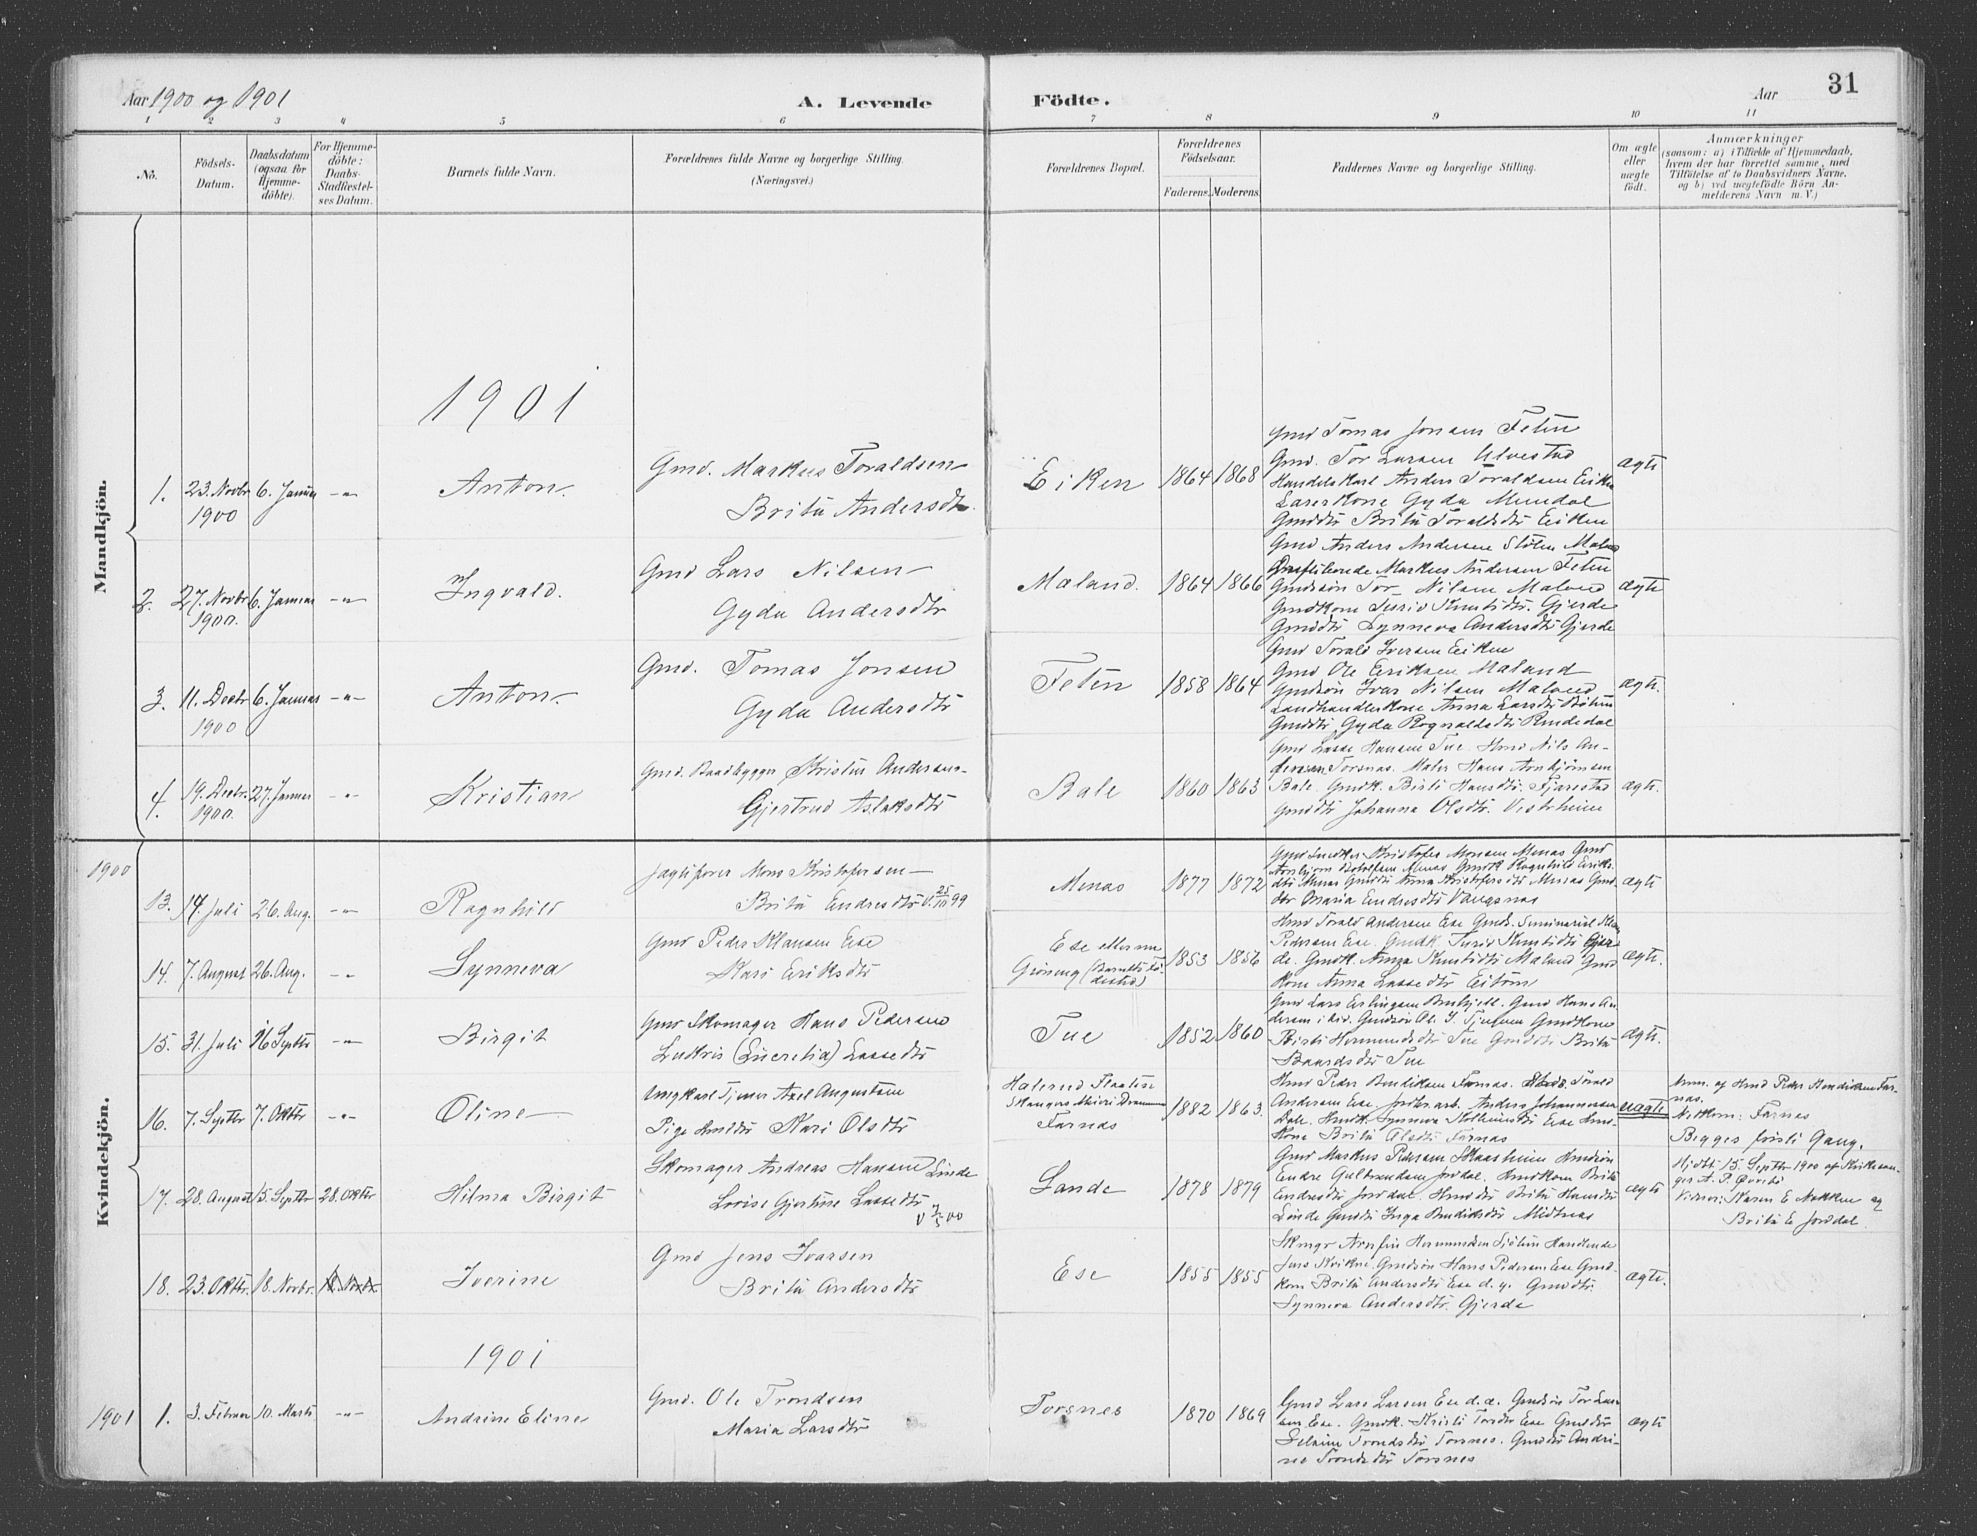 Aar 1900 og 1901
A. Levende
Födte.
Aar
31
1 2 3 4 5 6 7 8 9 10 11
No.
Födsels-
Datum.
Daabsdatum
(ogsaa for
Hjemme-
döbte).
For Hjemme-
döbte:
Daabs-
Stadfæstel-
ses Datum.
Barnets fulde Navn.
Forældrenes fulde Navne og borgerlige Stilling.
(Næringsvei.)
Forældrenes Bopæl.
Forældrenes
Födselsaar.
Faderens.
Moderens.
Faddernes Navne og borgerlige Stilling.
Om ægte
eller
uægte
födt.
Anmærkninger
(saasom: a) i Tilfælde af Hjemmedaab,
hvem der har forrettet samme, med
Tilföielse af to Daabsvidners Navne.
og b) ved uægtefödte Börn An-
melderens Navn m. V.)
Mandkjön.
1901
1. 23. Novbr
1900
6. Januar
-"-
Anton.
Gmd. Markus Toraldsen
Brita Andersdtr.
Eiken
1864
1868
Gmd Tomas Jonsen Feten
Gmd. Tor Larsen Ulvestad
Handelskarl Anders Toraldsen Eiken
Lærerkone Gyda Mundal
Gmddtr Brita Toraldsdtr Eiken
ægte
2. 27. Novbr
1900.
6. Januar
-"-
Ingvald.
Gmd Lars Nilsen
Gyda Andersdtr
Maland.
1864
1866
Gmd Anders Andersen Stölen Maland
Markus Andersen Feten
Gmdsön Tor Nilsen Maland
Gmdkone Turid Knutsdtr. Gjerde
Gmddtr Synneva Andersdtr Gjerde
ægte
3. 11. Decbr
1900
6. Januar
-"-
Anton.
Gmd. Tomas Jonsen
Gyda Andersdtr
Feten
1858
1864
Gmd Torald Iversen Eiken
Gmd Ole Eriksen Maland
Gmdsön Ivar Nilsen Maland
Landhandlerkone Anna Larsdtr Böhm
Gmddtr Gyda Rognaldsdtr Rendedal
ægte.
4. 19. Decbr.
1900.
27. Januar
-"-
Kristian
Gmd. Baadbygger Kristen Andersen
Gjertrud Aslaksdtr
Bale
1860
1863
Gmd Lasse Hansen Tue. Hmd Nils An-
dersen Torsnes. Maler Hans Arnbjörnsen
Bale. Gmdk. Brita Hansdtr. Fjærestad
Gmddtr Johanna Olsdtr. Vestrheim
ægte.
Kvindekjön.
1900
13. 14. Juli
26. Aug.
-"-
Ragnhild
Jagtförer Mons Kristofersen
Brita Endresdtr V. 25/10 99
Menæs
1877
1872
Gmd Snedker Kristofer Monsen Menæs Gmd
Arnbjörn Menæs Gmdk Ragnhild Eriks-
dtr Menæs Gmddtr Anna Kristofersdtr Menæs Gmd-
dtr Maria Gmddtr Vangsnæs
ægte
14. 7. August
26. Aug.
-"-
Synneva
Gmd Peder Klausen Ese
Kari Eriksdtr
Ese
Gröneng (Barnets Fö-
dested)
1853
1856
Hmd Torald Andersen Ese Gmds. Seminarist
Pedersen Ese. Gmdk. Turid Knutsdtr Gjer-
de. Gmdk. Anna Knutsdtr Maland Gmd
kone Anna Lassedtr Eitorn
ægte.
15. 31. Juli
16 Septbr
-"-
Birgit
Gmd Skomager Hans Pedersen
Ludtris (Lucretia) Lassedtr
Tue
1852
1860
Gmd Lars Erlingsen Gmd Hans An-
dersen Gmdsön Ole Gmdkone
Kristi Hermundsdtr Tue Gmddtr Brita
Baardsdtr Tue
ægte.
16. 7. Septbr
7. Oktbr
-"-
Oline
Ungkarl Tjener Axel Augustsen
Pige Hmddtr Kari Olsdtr
Farnæs
1882
1863.
Hmd Peder Bendiksen Farnæs. Torald
Andersen Ese. Jordbr.arb. Anders Johannessen
Bale. Hmdk. Synneva Ese Hmd-
kone Brita Olsdtr Farnæs
uægte
Anm. af Hmd Peder Bendiksen Far-
næs.
Nedkom: Farnæs
Begges förste Gang.
17. 28. August
15. Septbr
28. Oktbr
Hilma Birgit
Skomager Andreas Hansen Linde
Lovise Gjertine Lassedtr
V 3/5 00
Sande
1878
1879
Gmd Markus Pedersen Skaasheim Hmdsön
Endre Gulbrandsen Jordal. Hmdkone Brita
Andersdtr Jordal. Hmddtr Brita Hansdtr
Linde Gmddtr Inga Bendiksdtr Midtnæs
ægte
Hjdt. 15. Septbr 1900 af Kirkesan-
ger A. P.
Vidner: Karen E. Nökken og
Brita E. Jorddal.
18. 23. Oktbr.
18. Novbr.
18. Novbr.
Iverine
Gmd Jens Ivarsen
Brita Andersdtr
Ese
1855
1855
Skmgr Arnfin Hermundsen Sjötun Handlende
Gmdsön Hans Pedersen Ese Gmd-
kone Brita Andersdtr Ese d.y. Gmddtr.
Synneva Andersdtr. Gjerde
ægte.
1901
1901
1. 3. Februar
10. Marts
-"-
Andrine Eline
Gmd. Ole Trondsen
Maria Larsdtr
Torsnes
1870
1869
Gmd Lars Larsen Ese d.æ. Gmdsön Tor Lar-
sen Ese. Gmdk. Kristi Torsdtr Ese Gmddtr
Trondsdtr Torsnes. Gmddtr Andri-
ne Trondsdtr Torsnes
ægte